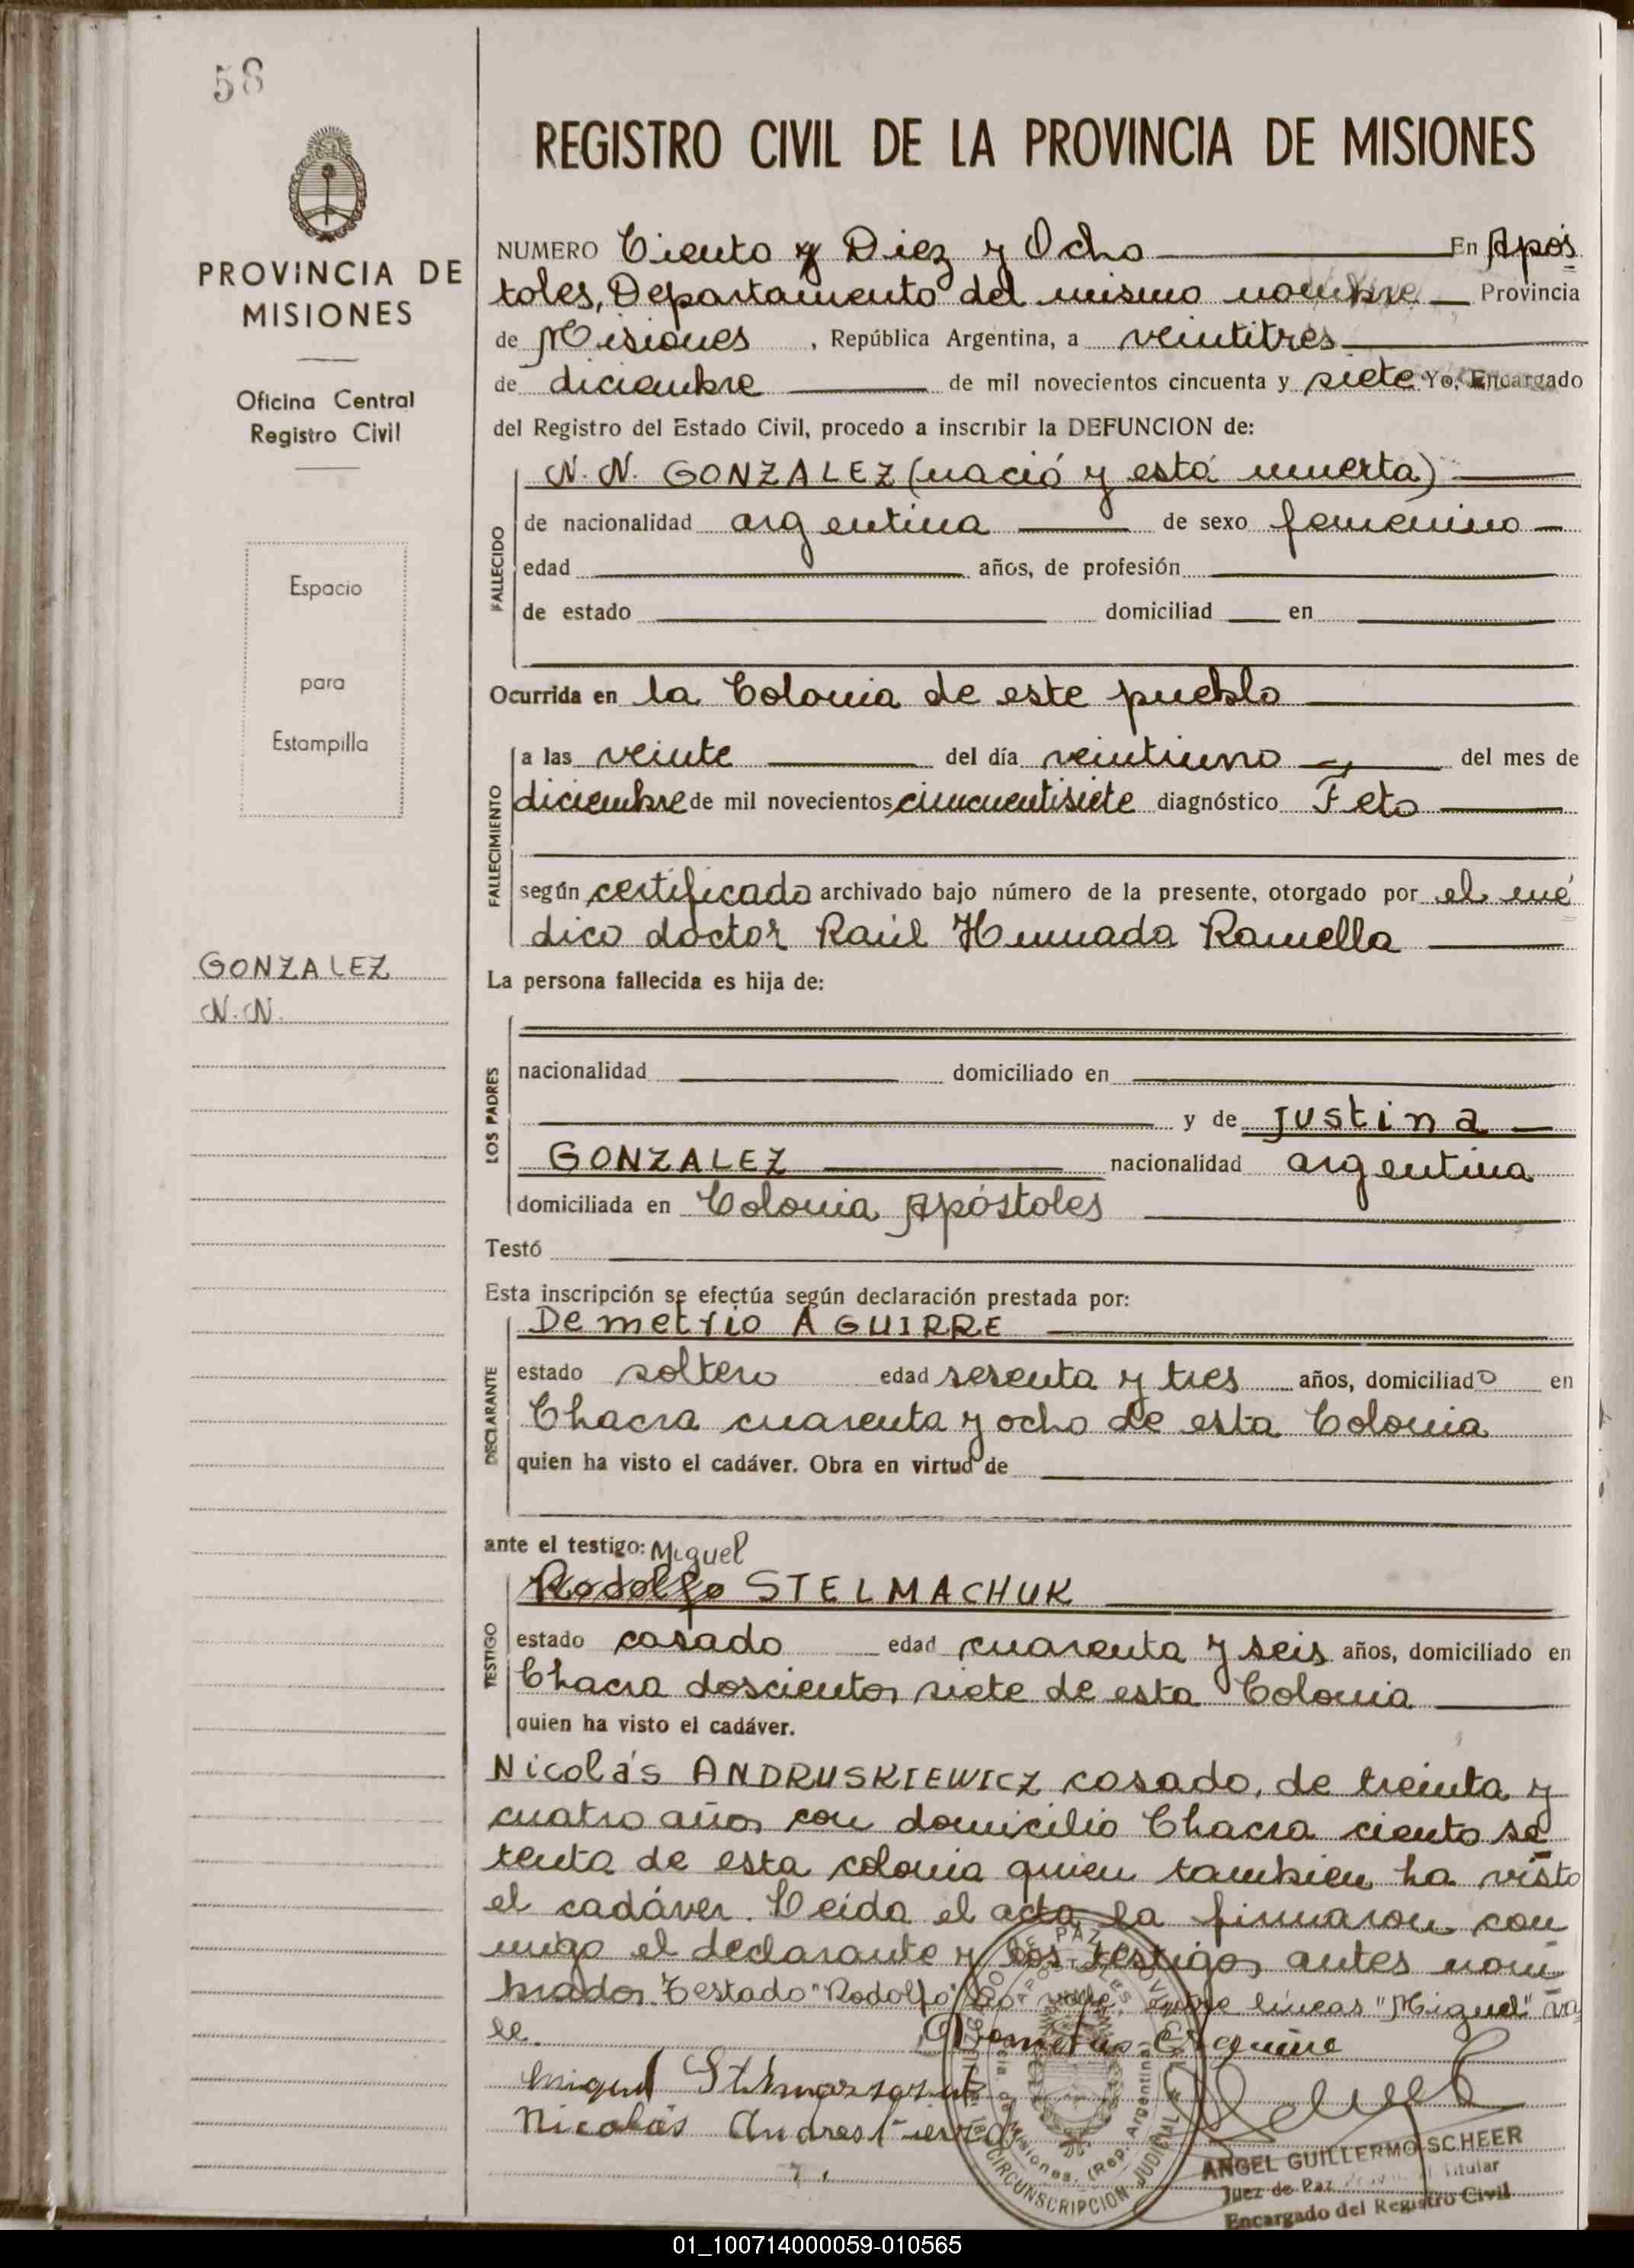 58
PROVINCIA DE
MISIONES
Oficina Central
Registro Civil
Espacio
para
Estampilla
GONZALEZ
N. N.
REGISTRO CIVIL DE LA PROVINCIA DE MISIONES
NUMERO Ciento y Diez y Ocho En Após
toles, Departamento del mismo nombre Provincia
de Misiones , República Argentina, a veintitres
de diciembre de mil novecientos cincuenta y siete Yo, Encargado
del Registro del Estado Civil, procedo a inscribir la DEFUNCION de:
N. N. GONZALEZ (nació y está muerta)
FALLECIDO
de nacionalidad argentina de sexo femenino
edad años, de profesión
de estado domiciliad en
Ocurrida en la Colonia de este pueblo
FALLECIMIENTO
a las veinte del día veintiuno del mes de
diciembre de mil novecientos cincuentisiete diagnóstico Feto
según certificado archivado bajo número de la presente, otorgado por el mé
dico doctor Raúl Ramella
La persona fallecida es hija de:
LOS PADRES
nacionalidad domiciliado en
y de Justina
GONZALEZ nacionalidad argentina
domiciliada en Colonia Apóstoles
Testó
Esta inscripción se efectúa según declaración prestada por:
DECLARANTE
Demetrio AGUIRRE
estado soltero edad sesenta y tres años, domiciliado en
Chacra cuarenta y ocho de esta Colonia
quien ha visto el cadáver. Obra en virtud de
ante el testigo: Miguel
TESTIGO
Rodolfo STELMACHUK
estado casado edad cuarenta y seis años, domiciliado en
Chacra doscientos siete de esta Colonia
quien ha visto el cadáver.
Nicolás ANDRUSKIEWICZ casado, de treinta y
cuatro años con domicilio Chacra ciento se
tenta de esta colonia quien tambien ha visto
el cadáver. Leida el acta la firmaron con
migo el declarante y los testigos antes nom
brados. Testado "Rodolfo" no vale entre líneas "Miguel" va
le.
Demetrio Aguirre
Miguel
Nicolás
PAZ
APOSTOLES
CIRCUNSCRIPCION JUDICIAL
Misiones, (Rep. Argentina)
ANGEL GUILLERMO SCHEER
Juez de Paz Titular
Encargado del Registro Civil
01_100714000059-010565